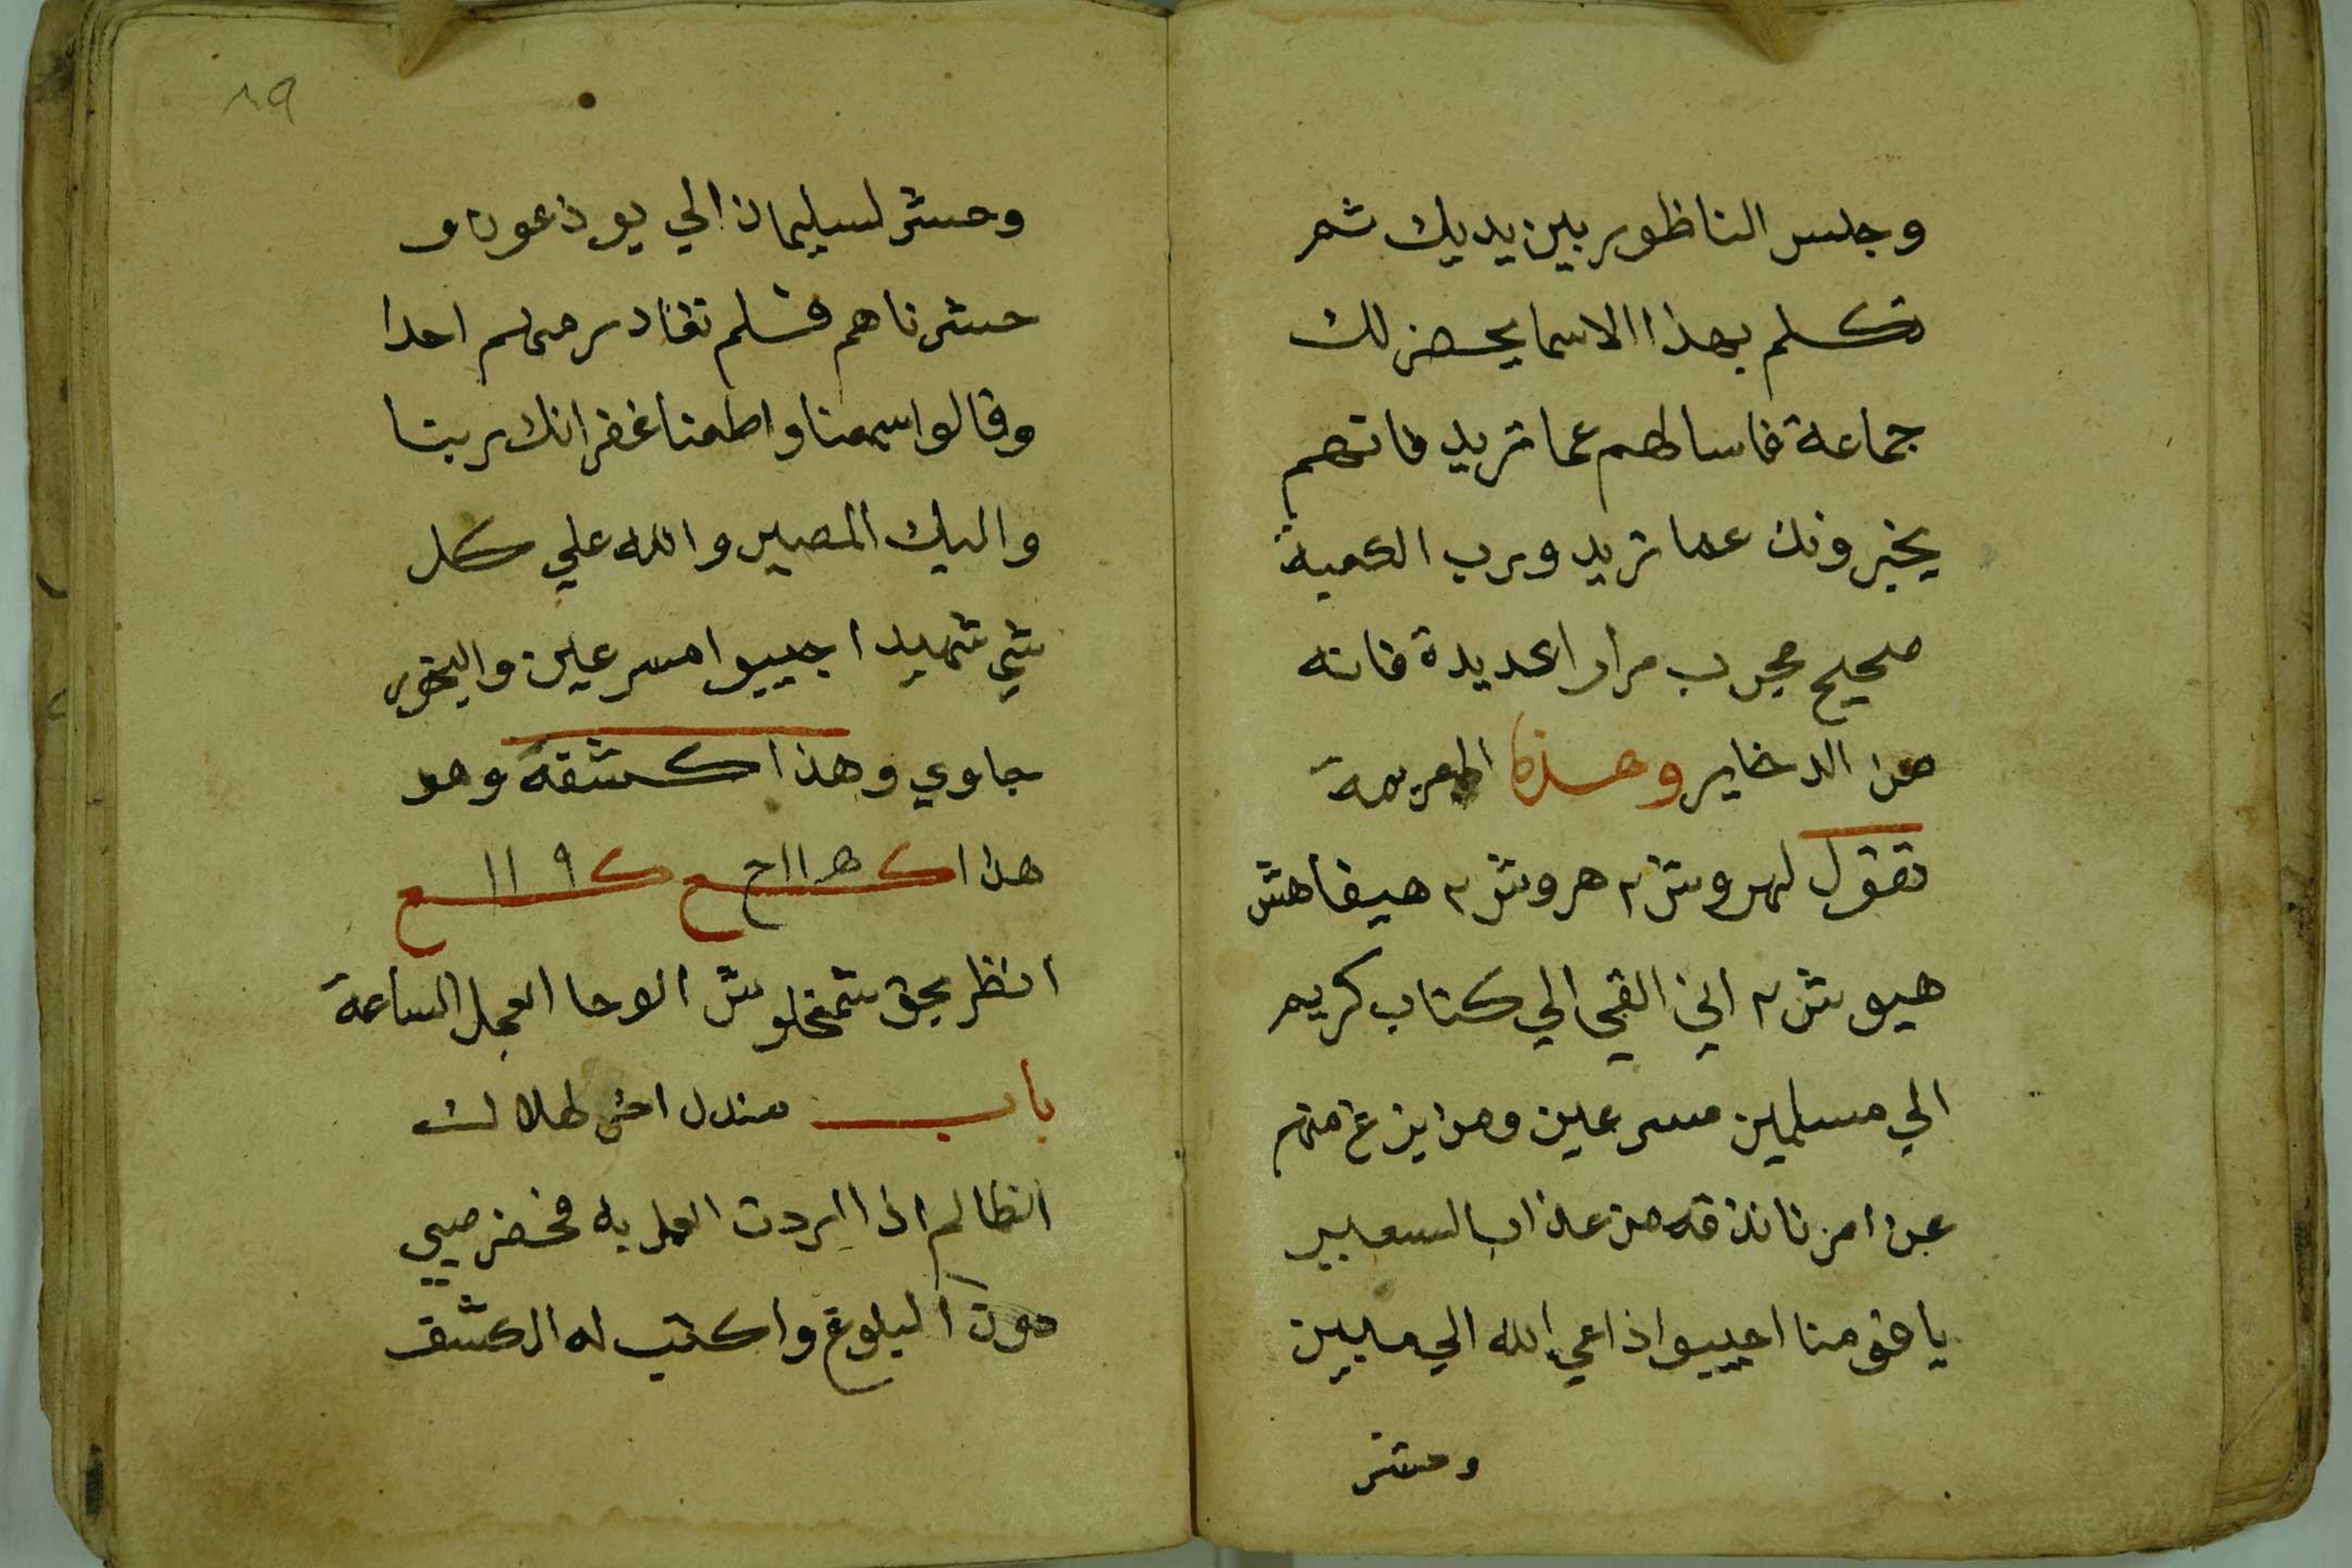 وجلس الناظور بين يديك ثم
تكلم بهذا الاسما يحضر لك
جماعة فاسالهم عما تريد فانهم
يخبرونك عما تريد ورب الكعبة
صحيح مجرب مرارا عديدة فانه
من الدخاير وهذه العزيمة
تقول لهروش ٢ هروش ٢ هيفاهش
هيوش ٢ اني القي الي كتاب كريم
الي مسلمين مسرعين ومن يزغ منهم
عن امرنا نذقه من عذاب السعير
يا قومنا اجيبوا داعي الله الي
وحشر
٨٩
وحشر لسليمان الي يوذعون و
حشرناهم فلم نغادر منهم احدا
وقالوا سمعنا واطعنا غفرانك ربنا
واليك المصير والله علي كل
شي شهيد اجيبوا مسرعين والبخور
جاوي وهذا كشفة وهو
هذا ك ه ١١ ح ع ك ٩ ١١ ع
انظر بحق شمخلوش الوحا العجل الساعة
باب مندل اخر
الظالم اذا اردت العمل به فحضر صبي
دون البلوغ واكتب له الكشف